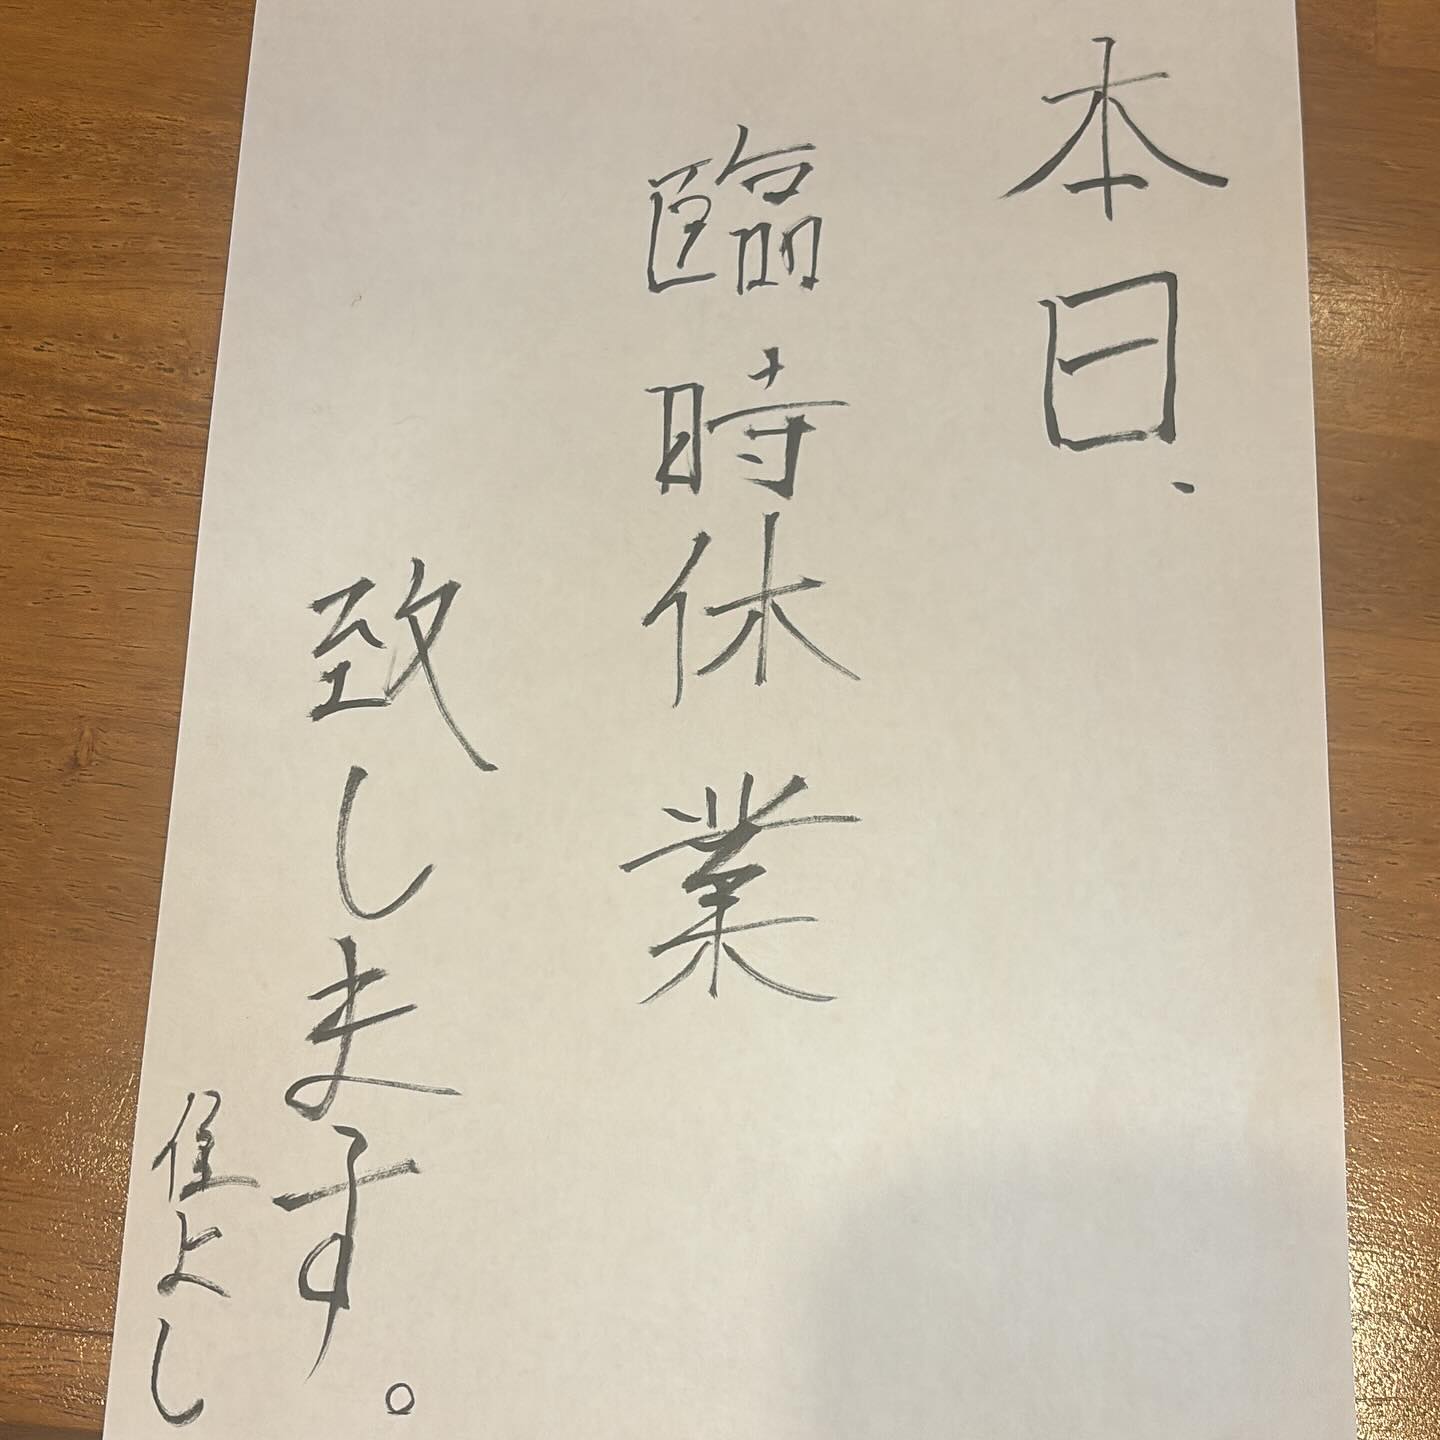 本日、
臨時休業
致します。
住よし